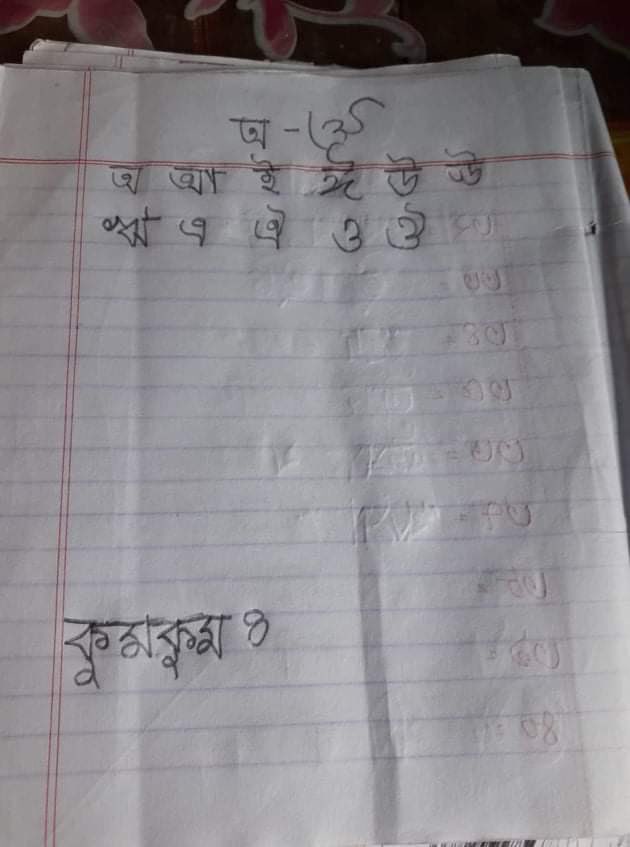 অ - ঔ
অ আ ই ঈ উ ঊ
ঋ এ ঐ ও ঔ
কুমকুম ৪